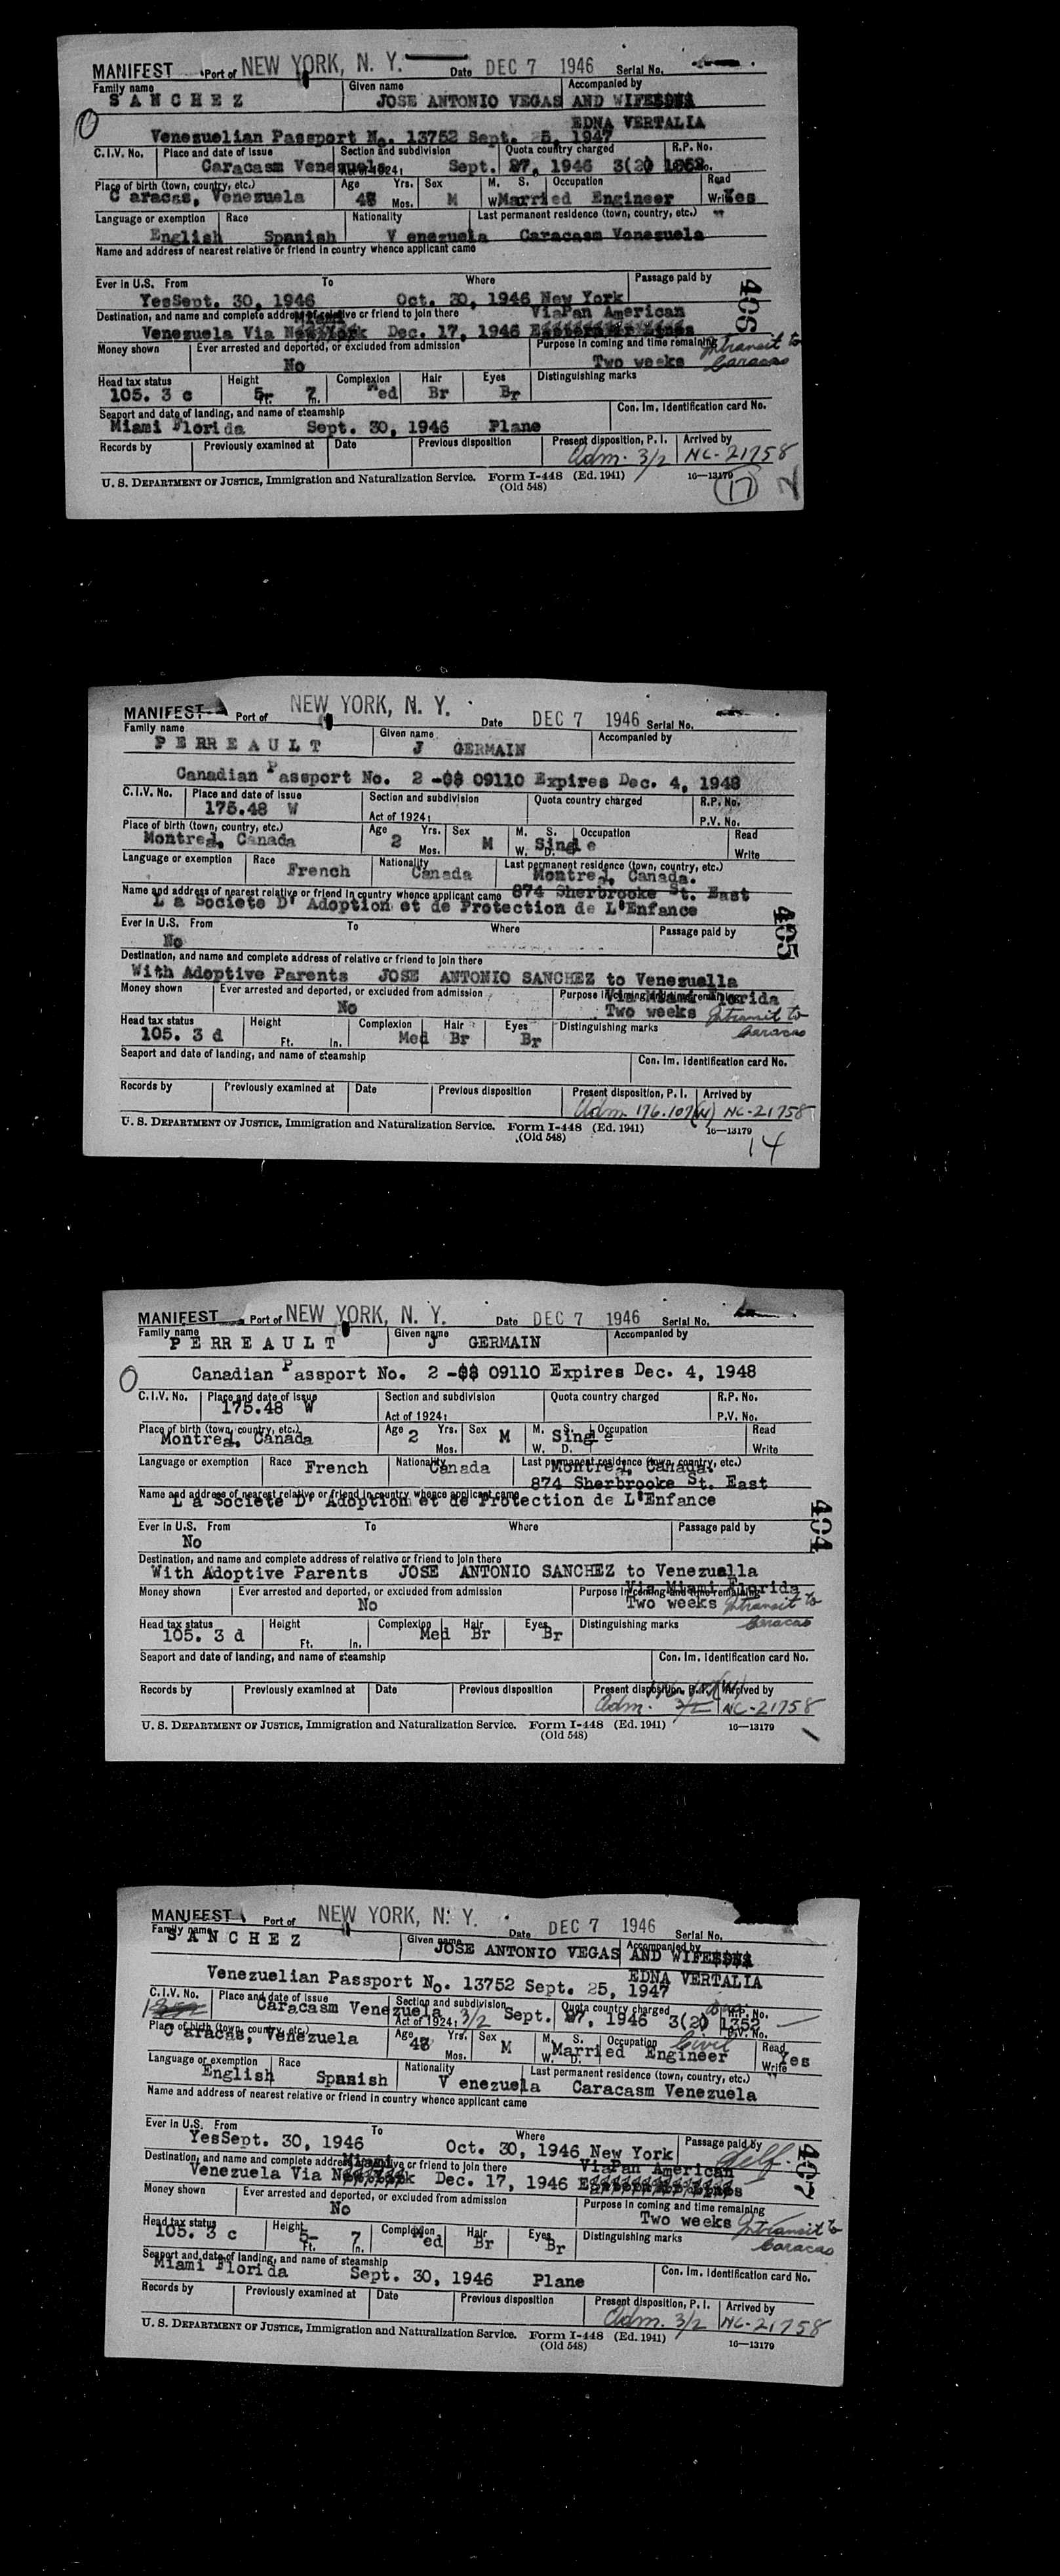 MANIFEST Port of NEW YORK, N. Y. Date DEC 7 1946 Serial No.
Family name Given name Accompanied by
S A N C H E Z JOSE ANTONIO VEGAS AND WIFE
EDNA VERTALIA
Venezuelian Passport No. 13752 Sept. 25, 1947
C.I.V. No. Place and date of issue Section and subdivision Quota country charged R.P. No.
Caracasm Venezuela Sept. 27, 1946 3(2) 1352
Place of birth (town, country, etc.) Age Yrs. Sex M. S. Occupation Read
C aracas, Venezuela Mos. M W Married Engineer Write Yes
Language or exemption Race Nationality Last permanent residence (town, country, etc.) "
English Spanish V enezuela Caracasm Venezuela
Name and address of nearest relative or friend in country whence applicant came
Ever in U.S. From To Where Passage paid by
YesSept. 30, 1946 Oct. 30, 1946 New York
Destination, and name and complete address of relative or friend to join there ViaPan American
Miami
Venezuela Via New York Dec. 17, 1946 Eastern Air Lines
406
Money shown Ever arrested and deported, or excluded from admission Purpose in coming and time remaining
No Two weeks Intransit to Caracas
Head tax status Height Complexion Hair Eyes Distinguishing marks
105. 3 c 5 Ft. 7 In. Med Br Br
Seaport and date of landing, and name of steamship Con. Im. Identification card No.
Miami Florida Sept. 30, 1946 Plane
Records by Previously examined at Date Previous disposition Present disposition, P. I. Arrived by
Adm. 3/2 NC-21758
U. S. DEPARTMENT OF JUSTICE, Immigration and Naturalization Service. Form I-448 (Ed. 1941) 16—13179
(Old 548) 17
MANIFEST Port of NEW YORK, N. Y. Date DEC 7 1946 Serial No.
Family name Given name Accompanied by
P E RR E A U L T J GERMAIN
Canadian Passport No. 2 -$$ 09110 Expires Dec. 4, 1948
C.I.V. No. Place and date of issue Section and subdivision Quota country charged R.P. No.
175.48 W Act of 1924: P.V. No.
Place of birth (town, country, etc.) Age Yrs. Sex M. S. Occupation Read
Montreal, Canada 2 Mos. M W. D. Single Write
Language or exemption Race Nationality Last permanent residence (town, country, etc.)
French Canada Montreal, Canada.
Name and address of nearest relative or friend in country whence applicant came 874 Sherbrooke St. East
L a Societe D' Adoption et de Protection de L'Enfance
Ever in U.S. From To Where Passage paid by
No
405
Destination, and name and complete address of relative or friend to join there
With Adoptive Parents JOSE ANTONIO SANCHEZ to Venezuella
Via Miami Florida
Money shown Ever arrested and deported, or excluded from admission Purpose in coming and time remaining
No Two weeks Intransit to Caracas
Head tax status Height Complexion Hair Eyes Distinguishing marks
105. 3 d Ft. In. Med Br Br
Seaport and date of landing, and name of steamship Con. Im. Identification card No.
Records by Previously examined at Date Previous disposition Present disposition, P. I. Arrived by
Adm. 176.107(W) NC-21758
U. S. DEPARTMENT OF JUSTICE, Immigration and Naturalization Service. Form I-448 (Ed. 1941) 16—13179
(Old 548) 14
MANIFEST Port of NEW YORK, N. Y. Date DEC 7 1946 Serial No.
Family name Given name Accompanied by
P E RR E A U L T J GERMAIN
Canadian Passport No. 2 -$$ 09110 Expires Dec. 4, 1948
C.I.V. No. Place and date of issue Section and subdivision Quota country charged R.P. No.
175.48 W Act of 1924: P.V. No.
Place of birth (town, country, etc.) Age Yrs. Sex M. S. Occupation Read
Montreal, Canada 2 Mos. M W. D. Single Write
Language or exemption Race Nationality Last permanent residence (town, country, etc.)
French Canada Montreal, Canada.
874 Sherbrooke St. East
Name and address of nearest relative or friend in country whence applicant came
L a Societe D' Adoption et de Protection de L'Enfance
Ever in U.S. From To Where Passage paid by
No
404
Destination, and name and complete address of relative or friend to join there
With Adoptive Parents JOSE ANTONIO SANCHEZ to Venezuella
Via Miami Florida
Money shown Ever arrested and deported, or excluded from admission Purpose in coming and time remaining
No Two weeks Intransit to Caracas
Head tax status Height Complexion Hair Eyes Distinguishing marks
105. 3 d Ft. In. Med Br Br
Seaport and date of landing, and name of steamship Con. Im. Identification card No.
Records by Previously examined at Date Previous disposition Present disposition, P.I. Arrived by
Adm. 3/2 NC-21758
U. S. DEPARTMENT OF JUSTICE, Immigration and Naturalization Service. Form I-448 (Ed. 1941) 16—13179
(Old 548)
MANIFEST Port of NEW YORK, N. Y. Date DEC 7 1946 Serial No.
Family name Given name Accompanied by
S A N C H E Z JOSE ANTONIO VEGAS AND WIFE
EDNA VERTALIA
Venezuelian Passport No. 13752 Sept. 25, 1947
C.I.V. No. Place and date of issue Section and subdivision Quota country charged R.P. No.
Caracasm Venezuela Act of 1924: 3/2 Sept. 27, 1946 3(2) 1352 P.V. No.
Place of birth (town, country, etc.) Age Yrs. Sex M. S. Occupation Civil Read
C aracas, Venezuela Mos. M W. D. Married Engineer Write Yes
Language or exemption Race Nationality Last permanent residence (town, country, etc.) "
English Spanish V enezuela Caracasm Venezuela
Name and address of nearest relative or friend in country whence applicant came
Ever in U.S. From To Where Passage paid by
YesSept. 30, 1946 Oct. 30, 1946 New York Self.
Destination, and name and complete address of relative or friend to join there ViaPan American
Miami
Venezuela Via New York Dec. 17, 1946 Eastern Air Lines
407
Money shown Ever arrested and deported, or excluded from admission Purpose in coming and time remaining
No Two weeks Intransit to Caracas
Head tax status Height Complexion Hair Eyes Distinguishing marks
105. 3 c 5 Ft. 7 In. Med Br Br
Seaport and date of landing, and name of steamship Con. Im. Identification card No.
Miami Florida Sept. 30, 1946 Plane
Records by Previously examined at Date Previous disposition Present disposition, P. I. Arrived by
Adm. 3/2 NC-21758
U. S. DEPARTMENT OF JUSTICE, Immigration and Naturalization Service. Form I-448 (Ed. 1941) 16—13179
(Old 548)